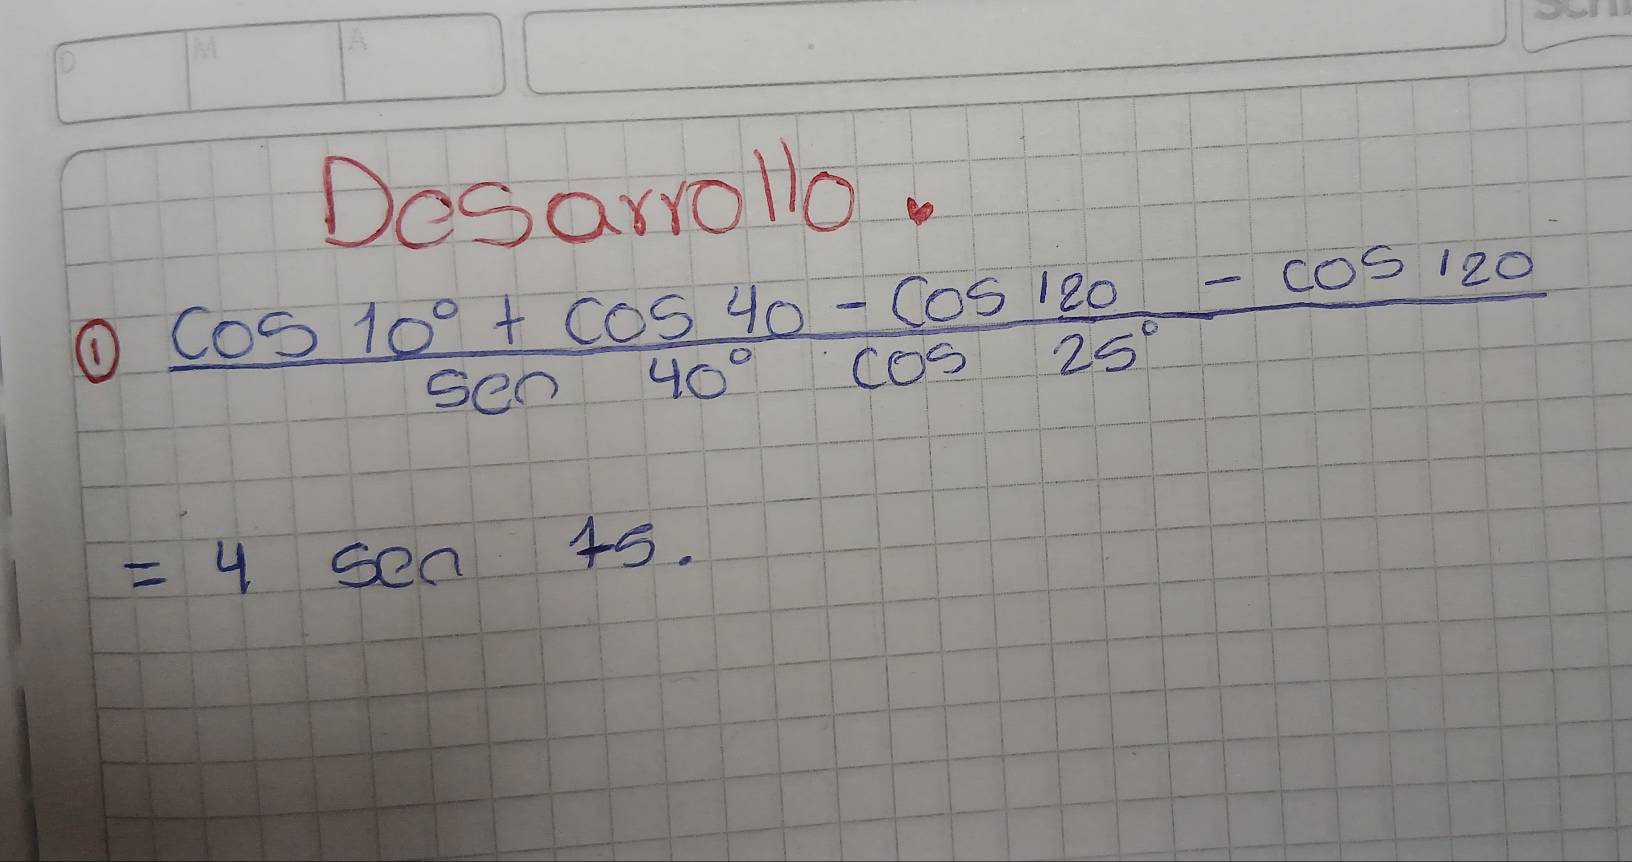 D M A
Desarrollo.
① cos 10° + cos 40 - cos 120 - cos 120
sen 40° cos 25°
= 4 sen 75.